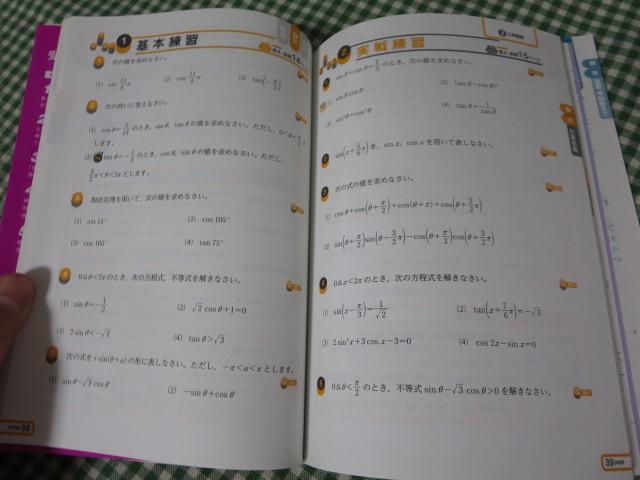 1 基本練習
1 次の値を求めなさい。
(1) sin 13/6 π (2) cos 11/4 π (3) tan(−π/3)
2 次の問いに答えなさい。
(1) cosθ=5/13 のとき，sinθ，tanθの値を求めなさい。ただし，0<θ<π/2 と
します。
(2) tanθ=−1/2 のとき，cosθ，sinθの値を求めなさい。ただし，
3/2 π<θ<2πとします。
3 加法定理を用いて，次の値を求めなさい。
(1) sin 15° (2) cos 105°
(3) cos 165° (4) tan 75°
4 0≦θ<2πのとき，次の方程式，不等式を解きなさい。
(1) sinθ=−1/2 (2) √2 cosθ+1=0
(3) 2 sinθ<−√3 (4) tanθ>√3
5 次の式を r sin(θ+α) の形に表しなさい。ただし，−π<α<πとします。
(1) sinθ−√3 cosθ (2) −sinθ+cosθ
38
2 実戦練習
1 のとき，次の値を求めなさい。
(1) sinθcosθ (2) (sinθ−cosθ)²
(3) sin³θ+cos³θ (4) tanθ+1/tanθ
2 sin(x+5/6 π) を，sin x，cos x を用いて表しなさい。
3 次の式の値を求めなさい。
(1) cosθ+cos(θ+π/2)+cos(θ+π)+cos(θ+3/2 π)
(2) sin(θ+π/2)sin(θ−3/2 π)−cos(θ+π/2)cos(θ+3/2 π)
4 0≦x<2πのとき，次の方程式を解きなさい。
(1) sin(x−π/3)=1/√2 (2) tan(x+7/6 π)=−√3
(3) 2 sin²x+3 cos x−3=0 (4) cos 2x−sin x=0
5 0≦θ<π/2 のとき，不等式 sinθ−√3 cosθ>0 を解きなさい。
39